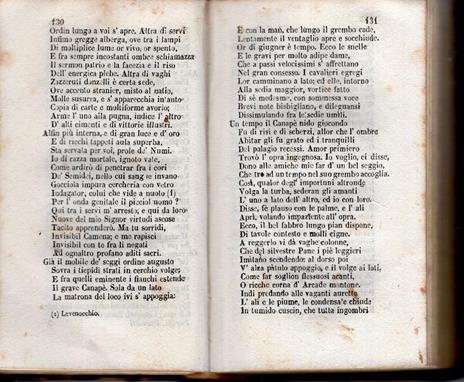 130
Ordin lungo a voi s' apre. Altra di servi
Infimo gregge alberga, ove tra i lampi
Di moltiplice lume or vivo, or spento,
E fra sempre incostanti ombre schiamazza
Il sermon patrio e la facezia e il riso
Dell' energica plebe. Altra di vaghi
Zazzeruti donzelli è certa sede,
Ove accento stranier, misto al natio,
Molle susurra, e s' apparecchia in tanto
Copia di carte e moltiforme avorio;
Arme l' uno alla pugna, indice l' altro
D' alti cimenti e di vittorie illustri.
Alfin più interna, e di gran luce e d' oro
E di ricchi tappeti aula superba,
Sta servata per voi, prole de' Numi.
Io di razza mortale, ignoto vate,
Come ardirò di penetrar fra i cori
De' Semidei, nello cui sang se invano
Gocciola impura cercheria con vetro
Indagator, colui che vide a nuoto (1)
Per l' onda genitale il picciol uomo?
Qui tra i servi m' arresto; e qui da loro
Nuove del mio Signor virtudi ascose
Tacito apprenderò. Ma tu sorridi,
Invisibil Camena; e me rapisci
Invisibil con te fra li negati
Ad ognaltro profano aditi sacri.
Già il mobile de' seggi ordine augusto
Sovra i tiepidi strati in cerchio volge:
E fra quelli eminente i fianchi estende
Il grave Canapè. Sola da un lato
La matrona del loco ivi s' appoggia:
(1) Levenocchio.
131
E con la man, che lungo il grembo cade,
Lentamente il ventaglio apre e socchiude.
Or di giugner è tempo. Ecco le snelle
E le gravi per molto adipe dame,
Che a passi velocissimi s' affrettano
Nel gran consesso. I cavalieri egregi
Lor camminano a lato; ed elle, intorno
Alla sedia maggior, vortice fatto
Di sè medesme, con sommessa voce
Brevi note bisbigliano, e dileguansi
Dissimulando fra le sedie umili.
Un tempo il Canapè nido giocondo
Fu di risi e di scherzi, allor che l' ombre
Abitar gli fu grato ed i tranquilli
Del palagio recessi. Amor primiero
Trovò l' opra ingegnosa. Io voglio, ei disse,
Dono alle amiche mie far d' un bel seggio,
Che tre ad un tempo nel suo grembo accolga.
Così, qualor degl' importuni altronde
Volga la turba, sederan gli amanti
L' uno a lato dell' altro, ed io con loro.
Disse, fè plauso con le palme, e l' ali
Aprì, volando impaziente all' opra.
Ecco, il bel fabbro lungo pian dispone,
Di tavole contesto e molli cigne.
A reggerlo vi dà vaghe colonne,
Che del silvestre Pane i piè leggieri
Imitano scendendo: al dorso poi
V' alza pitulo appoggio, e il volge ai lati,
Come far soglion flessuosi acanti,
O ricche corna d' Arcade montone.
Indi predando alle vaganti aurette
L' ali e le piume, le condensa e chiude
In tumido cuscin, che tutta ingombri